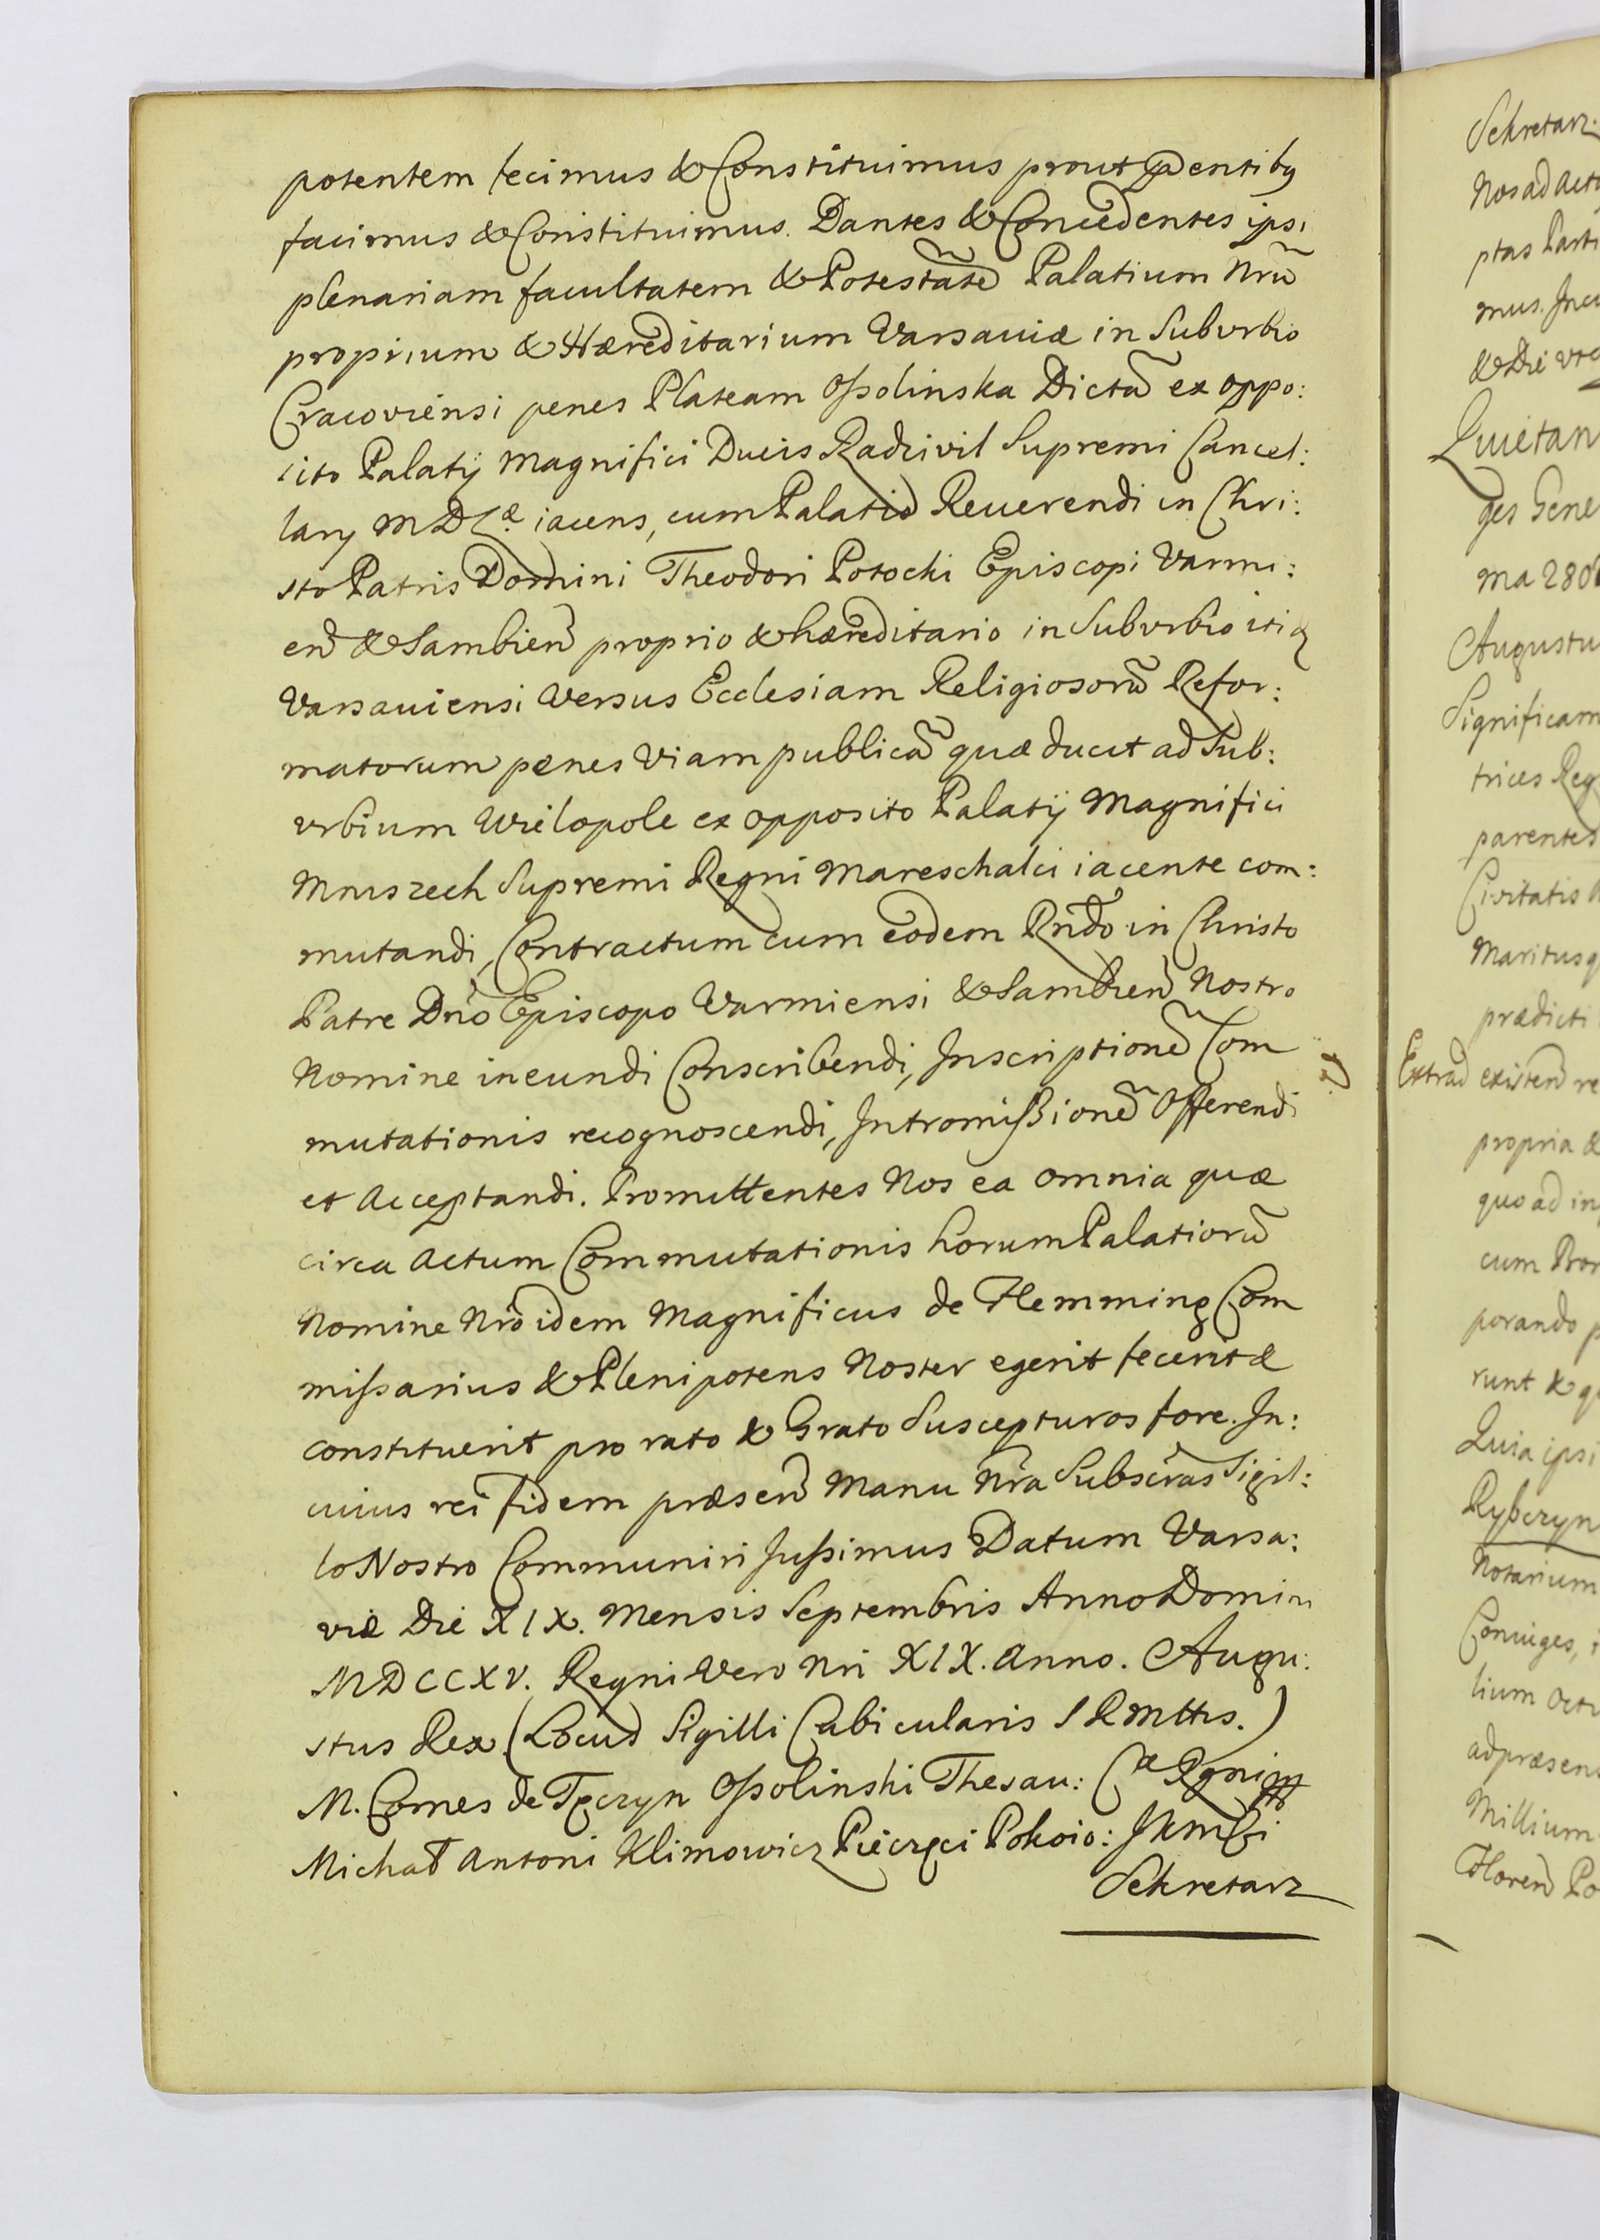 potentem fecimus & Constituimus prout pn̄tibq
facimus & Constituimus. Dantes & Concedentes ipsi
plenariam facultatem & Potestatē Palatium Nrū
proprium & Hæreditarium Varsauiæ in Suburbio
Cracoviensi penes Plateam Ossolinska Dictā ex oppo:
sito Palatÿ Magnifici Ducis Radzivil Supremi Cancel:
lary M D Læ iacens, cum Palatio Reuerendi in Chri:
sto Patris Domini Theodori Potocki Episcopi Varmi:
en̄ & Sambien̄ proprio & hæreditario in Suburbio itiq
Varsauiensi Versus Ecclesiam Religiosorū Refor:
matorum penes Viam publicā quæ ducit ad Sub:
vrbium Wielopole ex opposito Palatÿ Magnifici
Mniszech Supremi Regni Mareschalci iacente com:
mutandi, Contractum cum eodem Rndō in Christo
Patre Dnō Episcopo Varmiensi & Sambien̄ Nostro
Nomine ineundi Conscribendi, Inscriptionē Com
mutationis recognoscendi, Intromissionē Offerendi
et Acceptandi. Promittentes Nos ea omnia quæ
circa Actum Commutationis horum Palatiorū
Nomine Nrō idem Magnificus de Flemming Com
missarius & Plenipotens Noster egerit fecerit &
constituerit pro rato & Grato Suscepturos fore. In:
cuius rei fidem præsen̄ Manu Nrā Subscrās Sigil:
lo Nostro Communiri Jussimus Datum Varsa:
viæ Die XIX. Mensis Septembris Anno Domini
MDCCXV. Regni Vero Nri XIX. Anno. Augu:
stus Rex (Locus Sigilli Cubicularis S R Mttis.)
M. Comes de Tęczyn Ossolinski Thesau: Cæ Rgni
Michał Antoni Klimowicz Pieczęci Pokoio: JKMści
Sekretarz
Sekretarz
Nos ad Acta
ptas Parti
mus. In cu
& Die vt
Quietan
ges Gene
ma 280
Augustu
Significam
trices Reg
parentes
Civitatis
Maritus q
prædicti
Extrad existen̄ re
propria &
quo ad in
cum Pror
porando p
runt & q
Quia ipsi
Rybczyn
Notarium
Coniuges,
lium Octu
ad præsens
Millium
Floren̄ Po